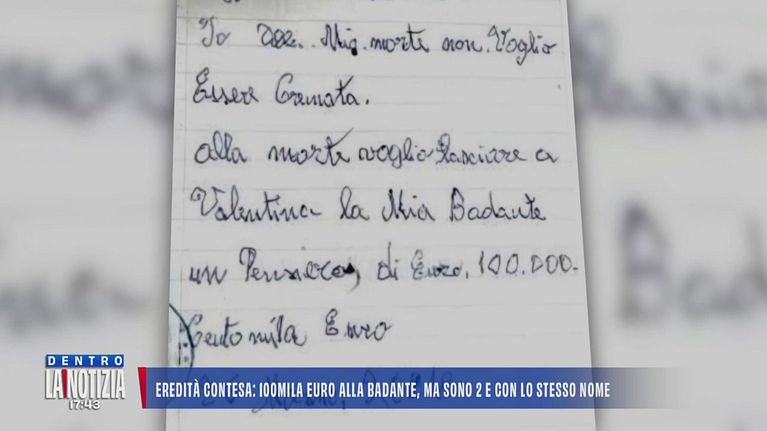 Io Mia. morte non. Voglio
Essere Cremata.
alla morte voglio lasciare a
Valentina la Mia Badante
un Pensiero, di Euro. 100.000-
Cento mila Euro
DENTRO
LA NOTIZIA
17:43
EREDITÀ CONTESA: 100MILA EURO ALLA BADANTE, MA SONO 2 E CON LO STESSO NOME